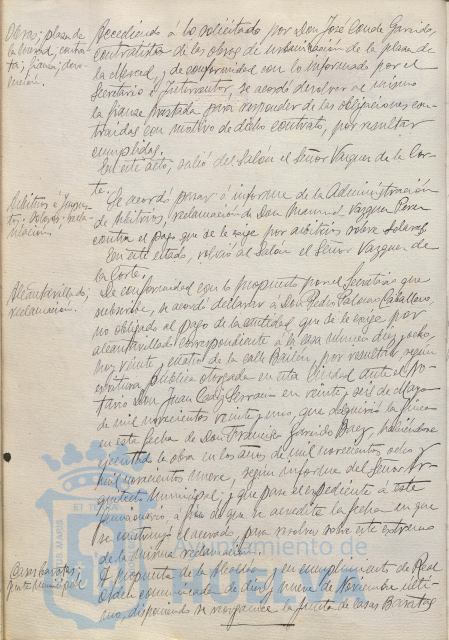 Obra; plaza de
la Merced, contra-
ta; fianza; devo-
lución.
Accediendo á lo solicitado por Don José Conde Garrido,
contratista de las obras de urbanización de la plaza de
la Merced, y de conformidad con lo informado por el
Secretario é Interventor, se acordó devolver al mismo
la fianza prestada para responder de las obligaciones con-
traidas con motivo de dicho contrato, por resultar
cumplidas.
En este acto, salió del Salón el Señor Vazquez de la Cor-
te.
Arbitrios é Impues-
tos; solares; recla-
mación.
Se acordó pasar á informe de la Administración
de Arbitrios, reclamación de Don Manuel Vazquez Perez
contra el pago que se le exige por arbitrios sobre solares.
En este estado, volvió al Salón el Señor Vazquez de
la Corte.
Alcantarillado;
reclamación.
De conformidad con lo propuesto por el Secretario que
subscribe, se acordó declarar á Don Pedro Caballero,
no obligado al pago de la cantidad que se le exige por
alcantarillado correspondiente á la casa número diez y ocho,
hoy veinte y cuatro de la calle Bailén, por resultar, según
escritura pública otorgada en esta Ciudad ante el No-
tario Don Juan Cádiz Serrano en veinte y seis de Mayo
de mil novecientos veinte y uno, que adquirió la finca
en esta fecha de Don Francisco Garrido Perez, habiéndose
ejecutado la obra en los años de mil novecientos ocho y
mil novecientos nueve, según informe del Señor Ar-
quitecto Municipal; y que pase el expediente á este
funcionario, á fin de que se acredite la fecha en que
se construyó el acerado, para resolver sobre este extremo
de la misma reclamación.
Casas baratas;
Junta Municipal.
A propuesta de la Alcaldía y en cumplimiento de Real
Orden comunicada de diez y nueve de Noviembre últi-
mo, disponiendo se reorganice la Junta de Casas Baratas
ET TERRÆ
Ayuntamiento de
HUELVA